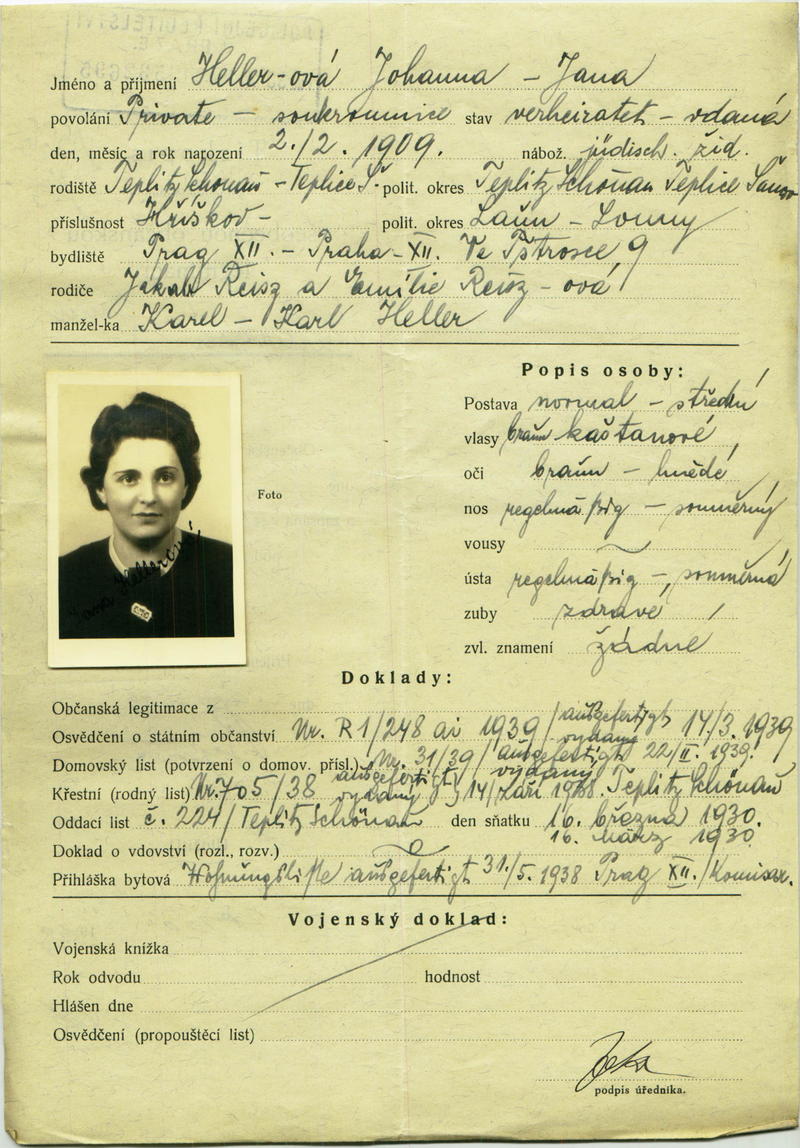 Jméno a příjmení Heller-ová Johanna – Jana
povolání Private – soukromnice stav verheiratet – vdaná
den, měsíc a rok narození 2./2. 1909. nábož. jüdisch. žid.
rodiště Teplitz Schönau – Teplice Š. polit. okres Teplitz Schönau Teplice Šanov
příslušnost Hříškov – polit. okres Laun – Louny
bydliště Prag XII. – Praha – XII. Ve Pštrosce 9
rodiče Jakob Reisz a Emilie Reisz – ová
manžel-ka Karel – Karl Heller
Popis osoby:
Postava normal – střední
vlasy braun kaštanové
oči braun – hnědé
nos regelmäßig – souměrný
vousy
ústa regelmäßig – souměrná
zuby zdravé
zvl. znamení žádné
Foto
Jana Hellerová
Doklady:
Občanská legitimace z
Osvědčení o státním občanství Nr. R1/248 ai 1939 / ausgefertigt vydány 14/3. 1939
Domovský list (potvrzení o domov. přísl.) Nr. 31/39 / ausgefertigt vydaný 22/II. 1939.
Křestní (rodný list) Nr. 705/38 ausgefertigt vydaný 14/září 1938. Teplitz Schönau
Oddací list č. 224/ Teplitz Schönau den sňatku 16. března 1930.
16. März 1930
Doklad o vdovství (rozl., rozv.)
Přihláška bytová Wohnungsliste ausgefertigt 31./5. 1938 Prag XII./Komisar.
Vojenský doklad:
Vojenská knížka
Rok odvodu hodnost
Hlášen dne
Osvědčení (propouštěcí list)
podpis úředníka.